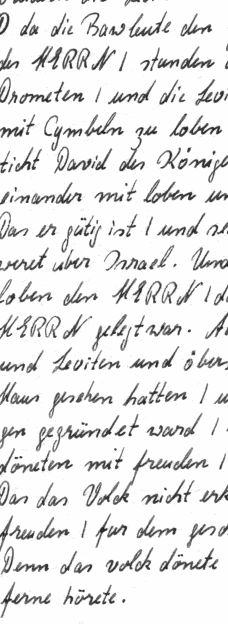 da die Bawleute den
des HERRN / stunden
Drometen / und die Levi
mit Cymbeln zu loben
ticht David des Königs
einander mit loben un
Das er gütig ist / und se
weret uber Israel. Und
loben den HERRN / d
HERRN gelegt war. A
und Leviten und öbers
Haus gesehen hatten / u
gen gegründet ward /
döneten mit freuden /
Das das Volck nicht erk
freuden / fur dem gesc
Denn das volck dönete
ferne hörete.